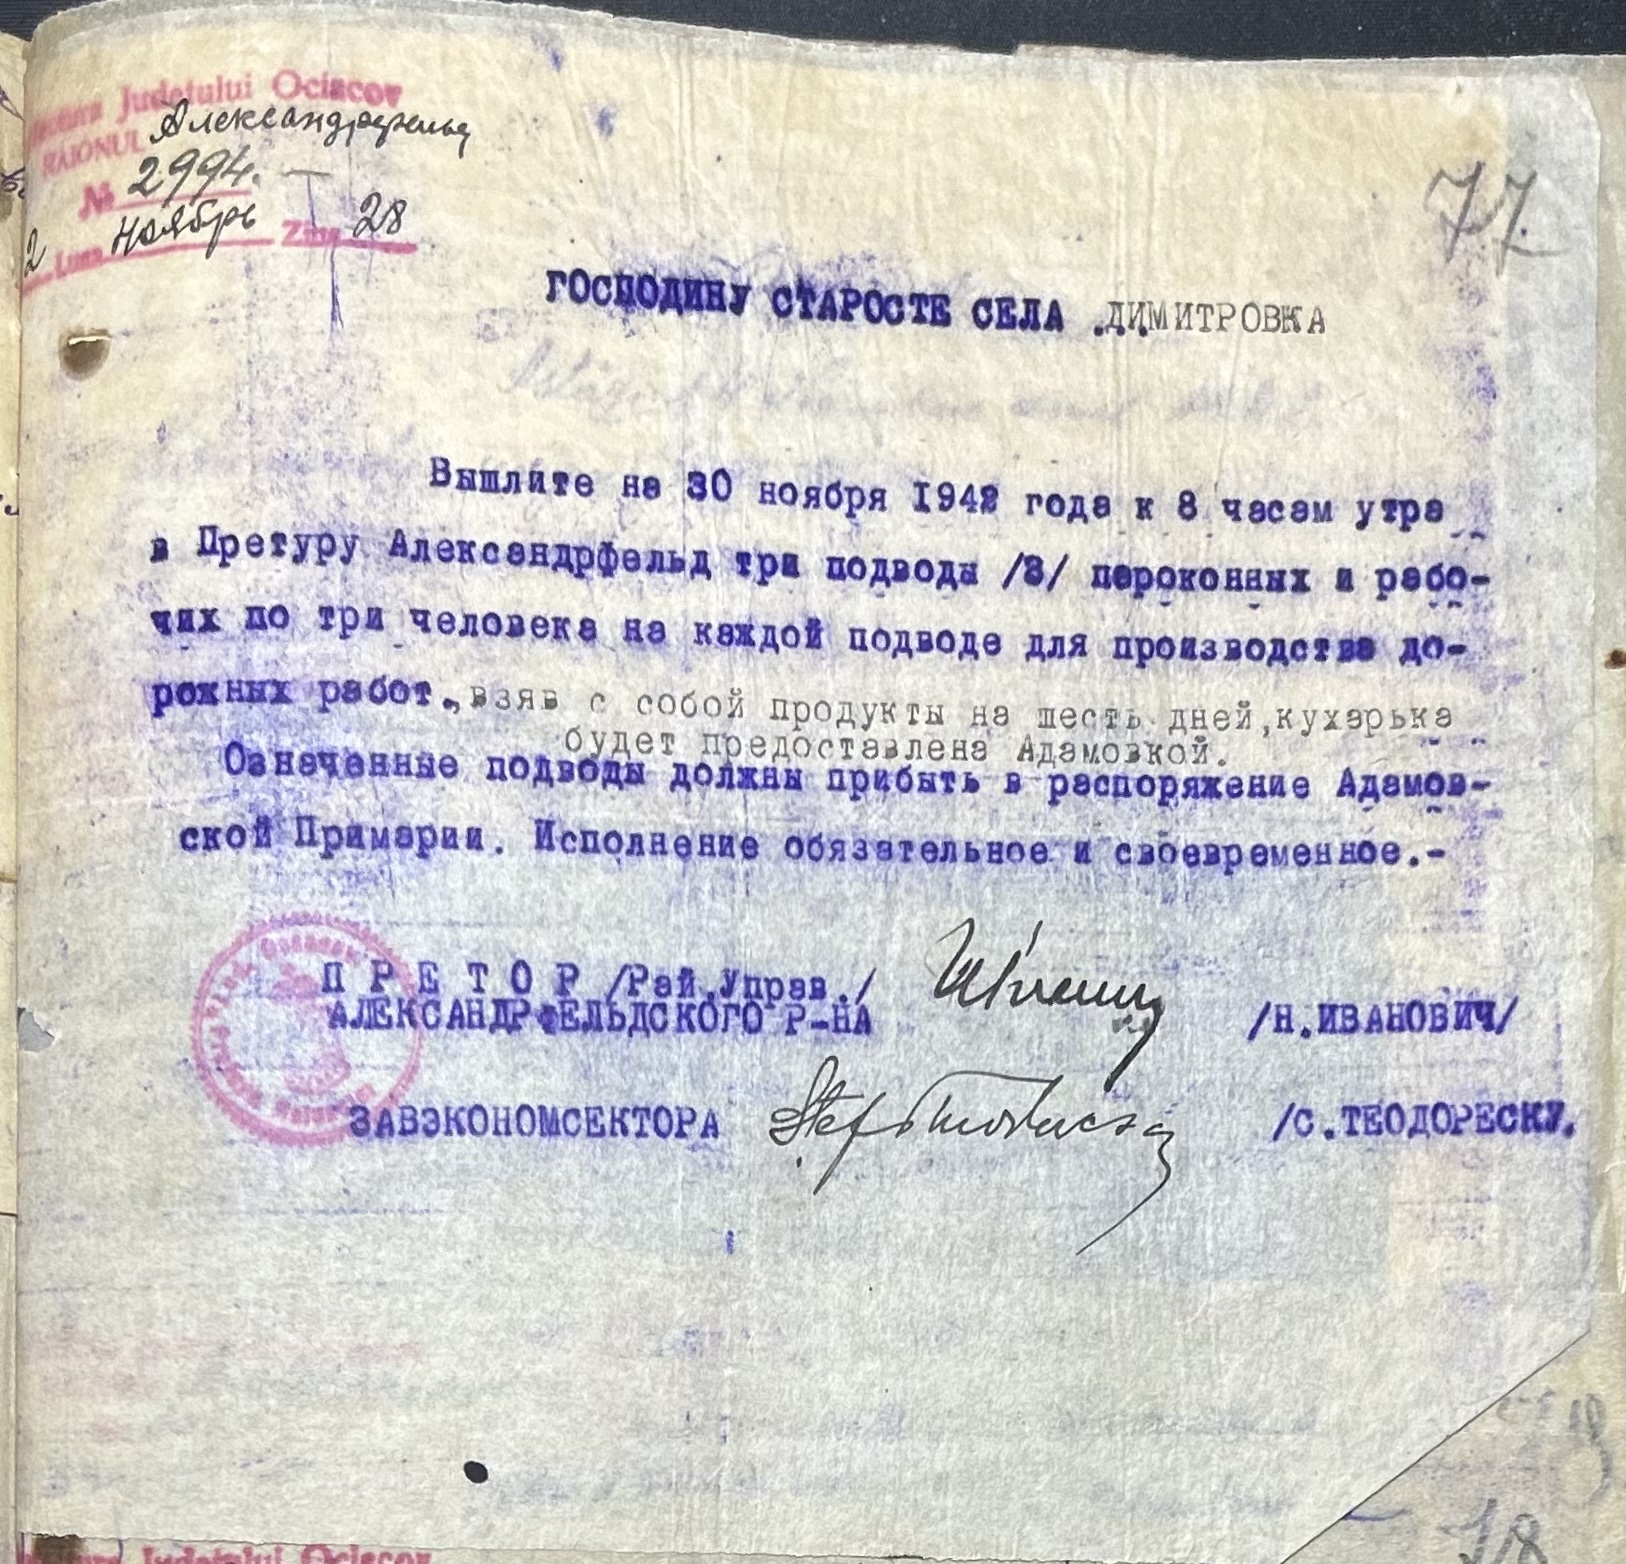 Județului Ociacov
RAIONUL Александрфельд
№ 2994. —
2 Luna ноябрь Ziua 28
77.
ГОСПОДИНУ СТАРОСТЕ СЕЛА .ДИМИТРОВКА
Вышлите на 30 ноября 1942 года к 8 часам утра
в Претуру Александрфельд три подводы /3/ пароконных и рабо-
чих по три человека на каждой подводе для производства до-
рожных работ.,взяв с собой продукты на шесть дней,кухарька
будет предоставлена Адамовкой.
Означенные подводы должны прибыть в распоряжение Адамов-
ской Примарии. Исполнение обязательное и своевременное.-
П Р Е Т О Р /Рай.Управ./
АЛЕКСАНДРФЕЛЬДСКОГО Р-НА /Н.ИВАНОВИЧ/
ЗАВЭКОНОМСЕКТОРА /С.ТЕОДОРЕСКУ.
78
Județului Ociacov